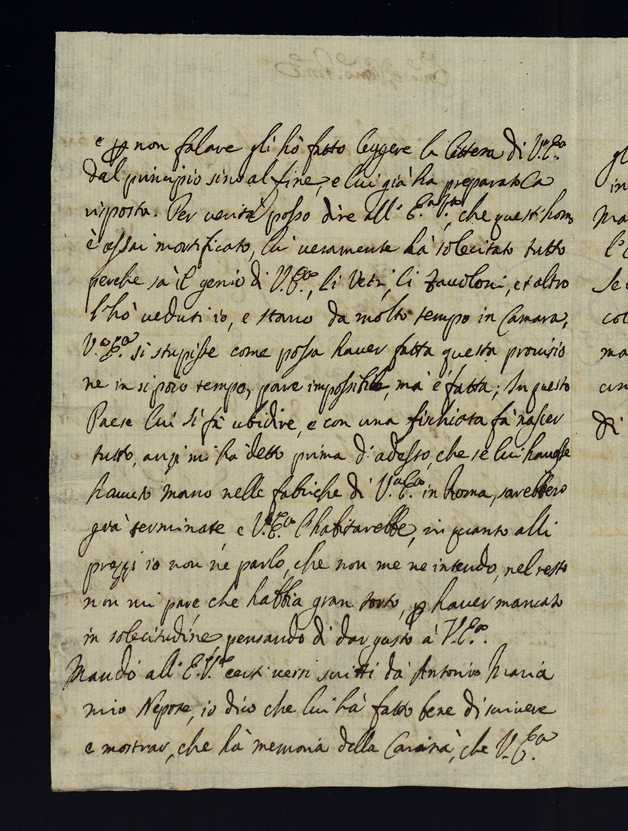 e p non falare gli hò fatto leggere la lettera di V.ra E.za
dal principio sino al fine, e lui già ha preparato la
risposta. Per verità posso dire all' E.za V.ra, che quest' homo
è assai mortificato, lui veramente hà solecitato tutto
perche sà il genio di V.E.za, li Vetri, li Tavoloni, et altro
l'hò veduti io, e stano da molto tempo in Camara,
V.ra E.za si stupisse come possa haver fatta questa provisio
ne in si poco tempo, pare impossibile, mà è fatta; In questo
Paese lui si fà ubidire, e con una fischiata fà nascer
tutto, anzi mi ha detto prima d' adesso, che se lui havesse
havuto mano nelle fabriche di V.ra E.za in Roma, sarebbero
già terminate e V.ra E.za l'habitarebbe, in quanto alli
prezzi io non ne parlo, che non me ne intendo, nel resto
non mi pare che habbia gran torto, p haver mancato
in solecitudine pensando di dar gusto à V.E.za.
Mando all' E.V.ra certi versi scritti dà Antonio Maria
mio Nepote, io dico che lui hà fatto bene di scrivere
e mostrar, che hà memoria della Carità, che V.E.za
gl
in
Ma
l'
Se
col
ma
di